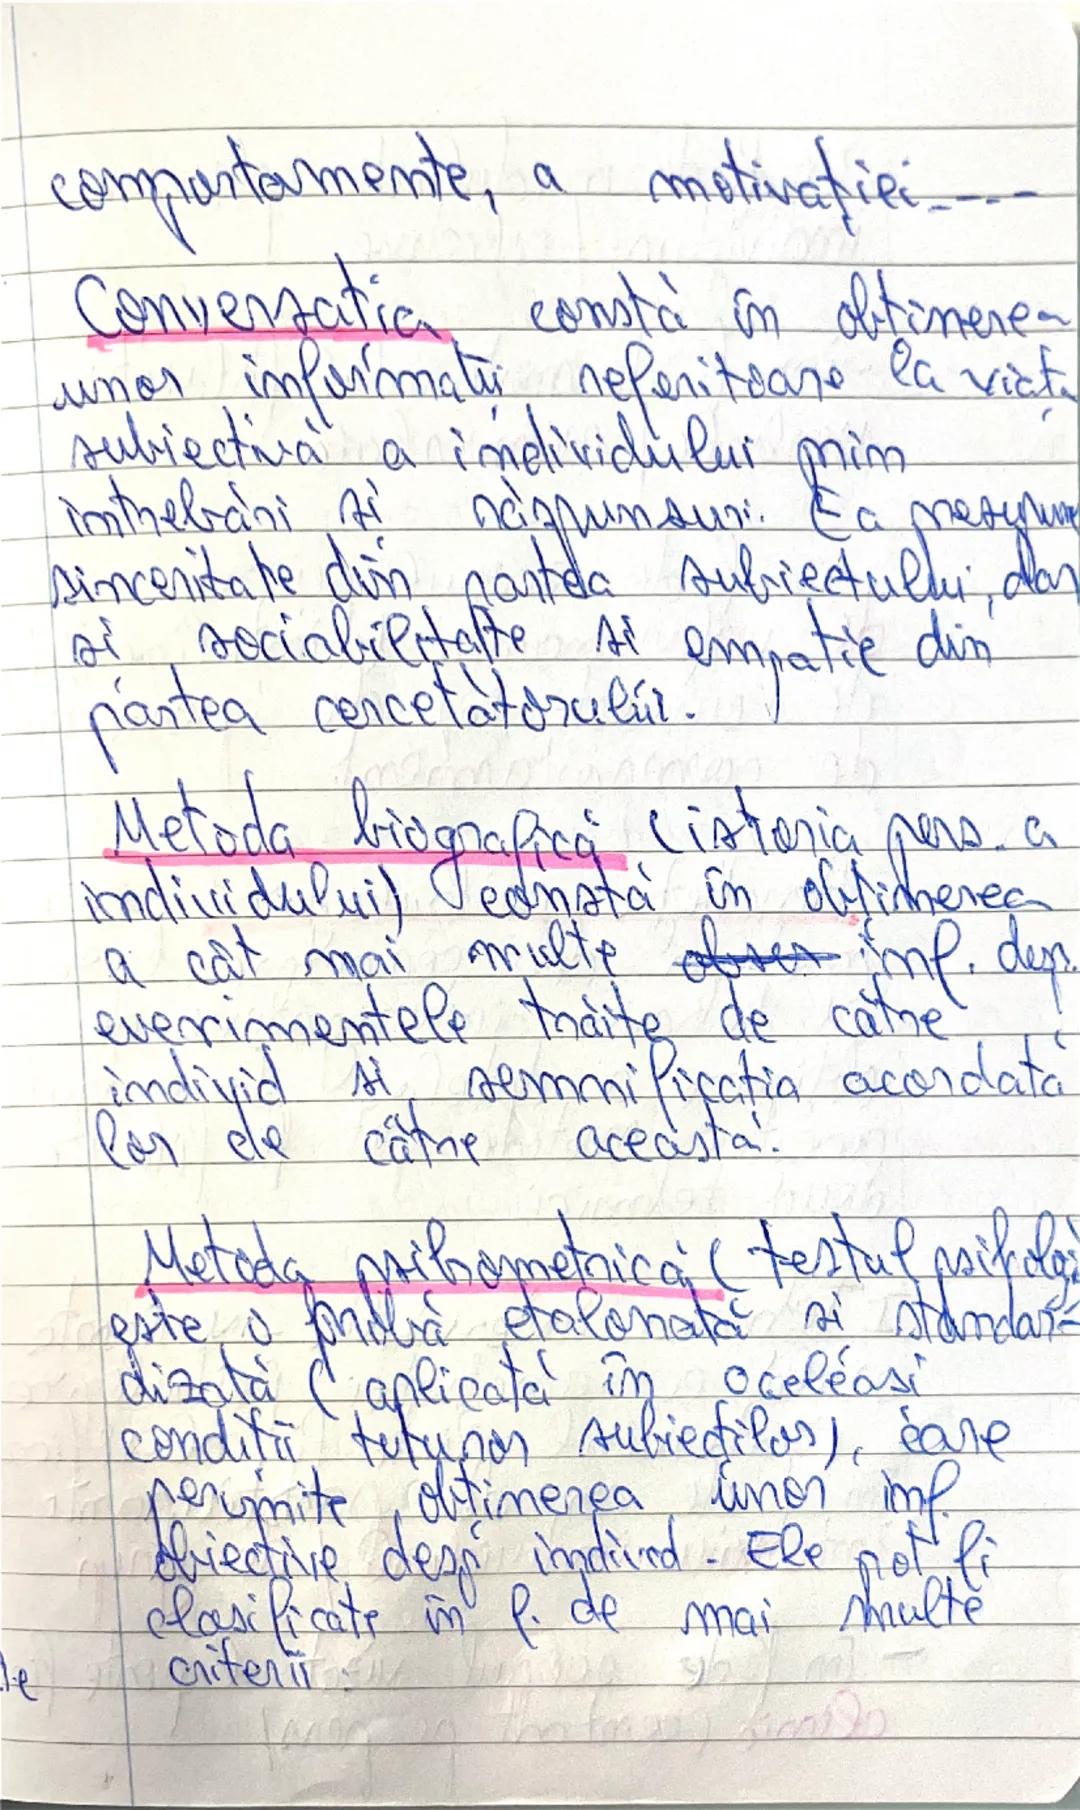 comportamente, a motivației ----
Conversația constă în obținerea
unor informații referitoare la viața
subiectivă a individului prin
întrebări și răspunsuri. Ea presupune
sinceritate din partea subiectului, dar
și sociabilitate și empatie din
partea cercetătorului.
Metoda biografică (istoria pers. a
individului) constă în obținerea
a cât mai multe inf. desp.
evenimentele trăite de către
individ și semnificația acordată
lor de către aceasta.
Metoda psihometrică (testul psiholog
este o probă etalonată și standar-
dizată (aplicată în aceleași
condiții tuturor subiecților), care
permite obținerea unor inf.
obiective desp individ. Ele pot fi
clasificate în f. de mai multe
criterii.